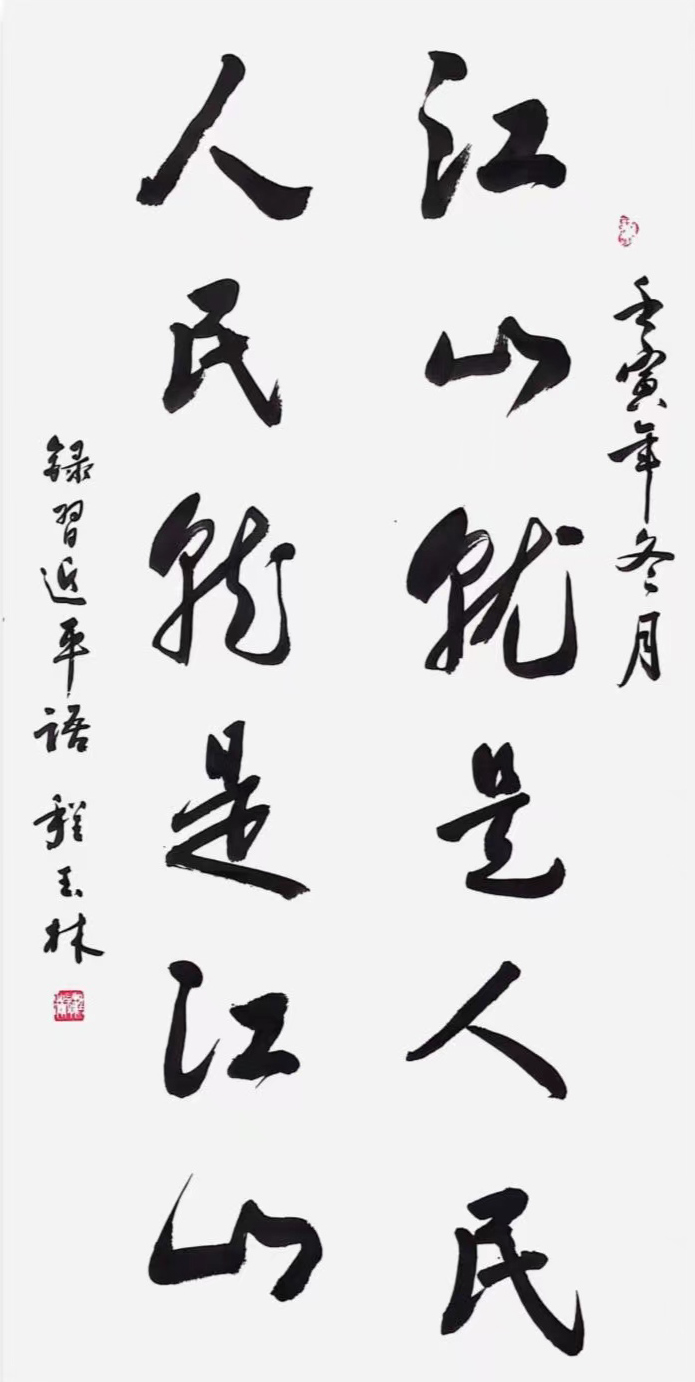 壬寅年冬月
江山就是人民
人民就是江山
録習近平語 程玉林